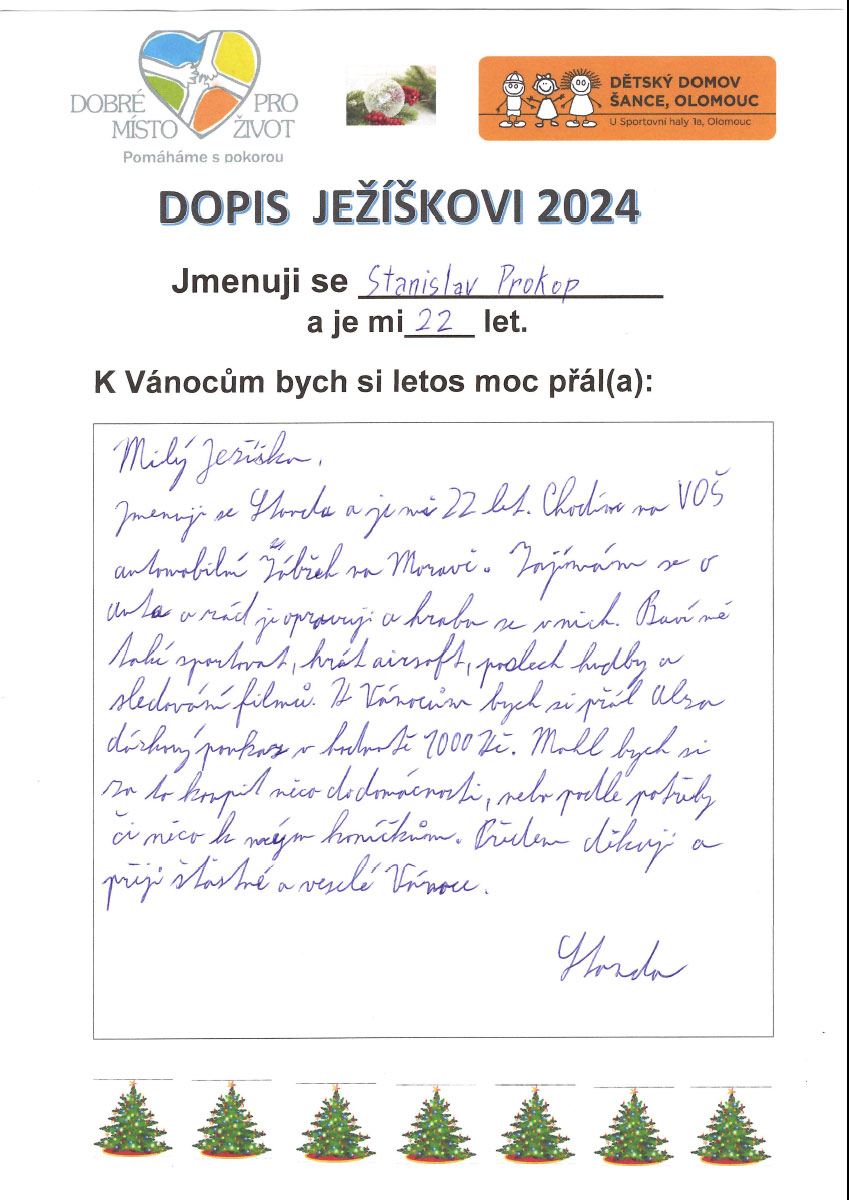 DOBRÉ PRO
MÍSTO ŽIVOT
Pomáháme s pokorou
DĚTSKÝ DOMOV
ŠANCE, OLOMOUC
U Sportovní haly 1a, Olomouc
DOPIS JEŽÍŠKOVI 2024
Jmenuji se Stanislav Prokop
a je mi 22 let.
K Vánocům bych si letos moc přál(a):
Milý Ježíšku,
jmenuji se Standa a je mi 22 let. Chodím na VOŠ
automobilní Zábřeh na Moravě. Zajímám se o
auta a rád je opravuji a hrabu se v nich. Baví mě
také sportovat, hrát airsoft, poslech hudby a
sledování filmů. K Vánocům bych si přál Alza
dárkový poukaz v hodnotě 1000 Kč. Mohl bych si
za to koupit něco do domácnosti, nebo podle potřeby
či něco k mým koníčkům. Předem děkuji a
přeji šťastné a veselé Vánoce.
Standa